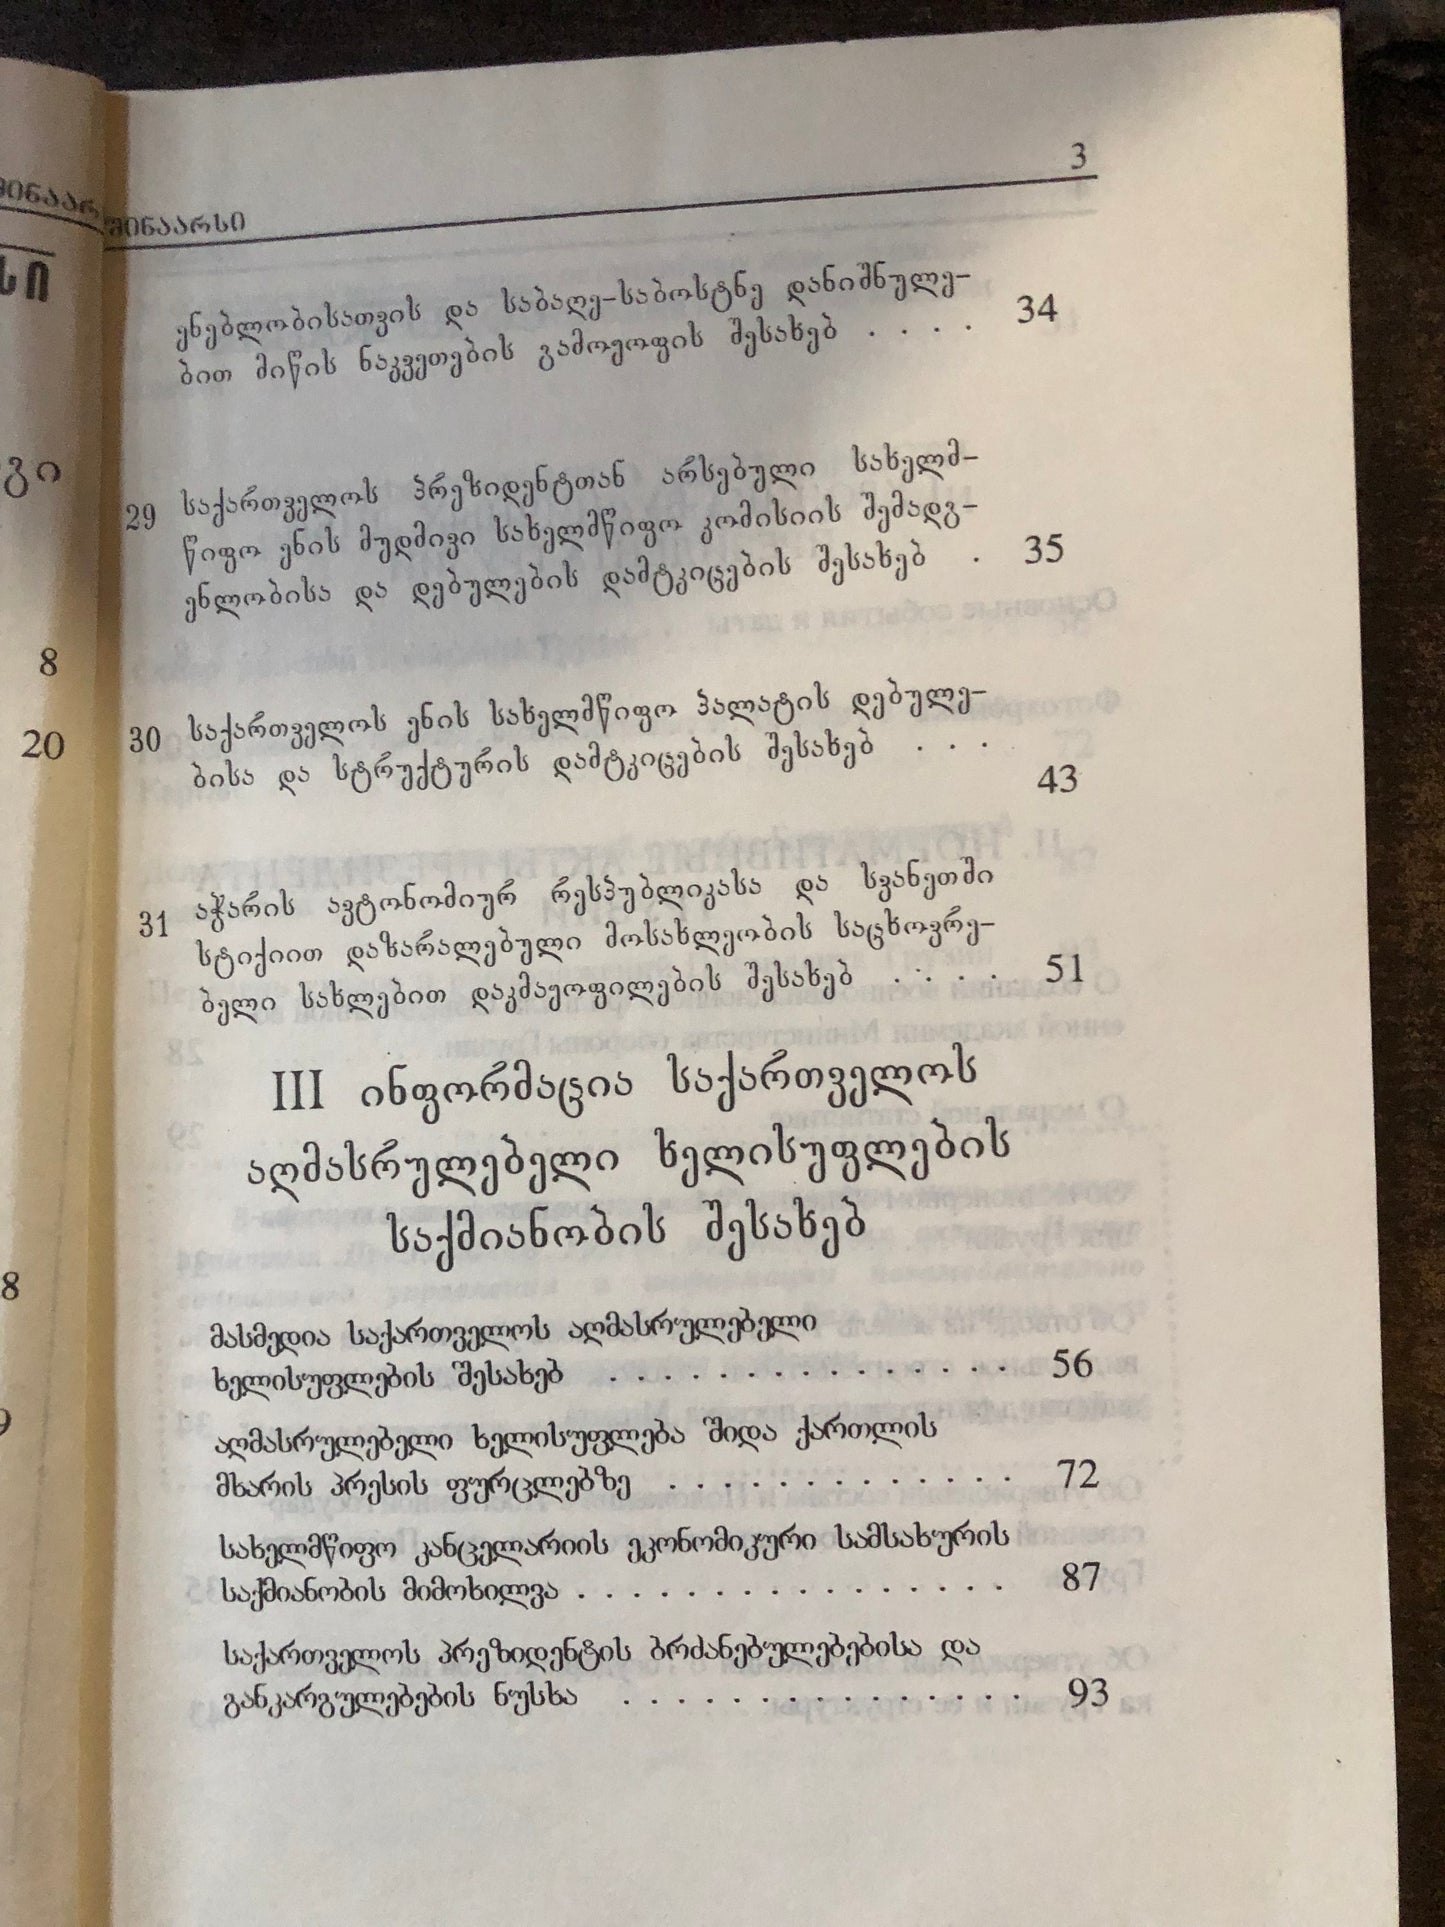 3
შინაარსი
ენებლობისათვის და საბაღე-საბოსტნე დანიშნულე-
ბით მიწის ნაკვეთების გამოყოფის შესახებ . . . . 34
29 საქართველოს პრეზიდენტთან არსებული სახელმ-
წიფო ენის მუდმივი სახელმწიფო კომისიის შემადგ-
ენლობისა და დებულების დამტკიცების შესახებ . 35
30 საქართველოს ენის სახელმწიფო პალატის დებულე-
ბისა და სტრუქტურის დამტკიცების შესახებ . . .
43
31 აჭარის ავტონომიურ რესპუბლიკასა და სვანეთში
სტიქიით დაზარალებული მოსახლეობის საცხოვრე-
ბელი სახლებით დაკმაყოფილების შესახებ . . . . 51
III ინფორმაცია საქართველოს
აღმასრულებელი ხელისუფლების
საქმიანობის შესახებ
მასმედია საქართველოს აღმასრულებელი
ხელისუფლების შესახებ . . . . . . . . . . . . . . . 56
აღმასრულებელი ხელისუფლება შიდა ქართლის
მხარის პრესის ფურცლებზე . . . . . . . . . . . . . 72
სახელმწიფო კანცელარიის ეკონომიკური სამსახურის
საქმიანობის მიმოხილვა . . . . . . . . . . . . . . . . 87
საქართველოს პრეზიდენტის ბრძანებულებებისა და
განკარგულებების ნუსხა . . . . . . . . . . . . . . . 93
8
20